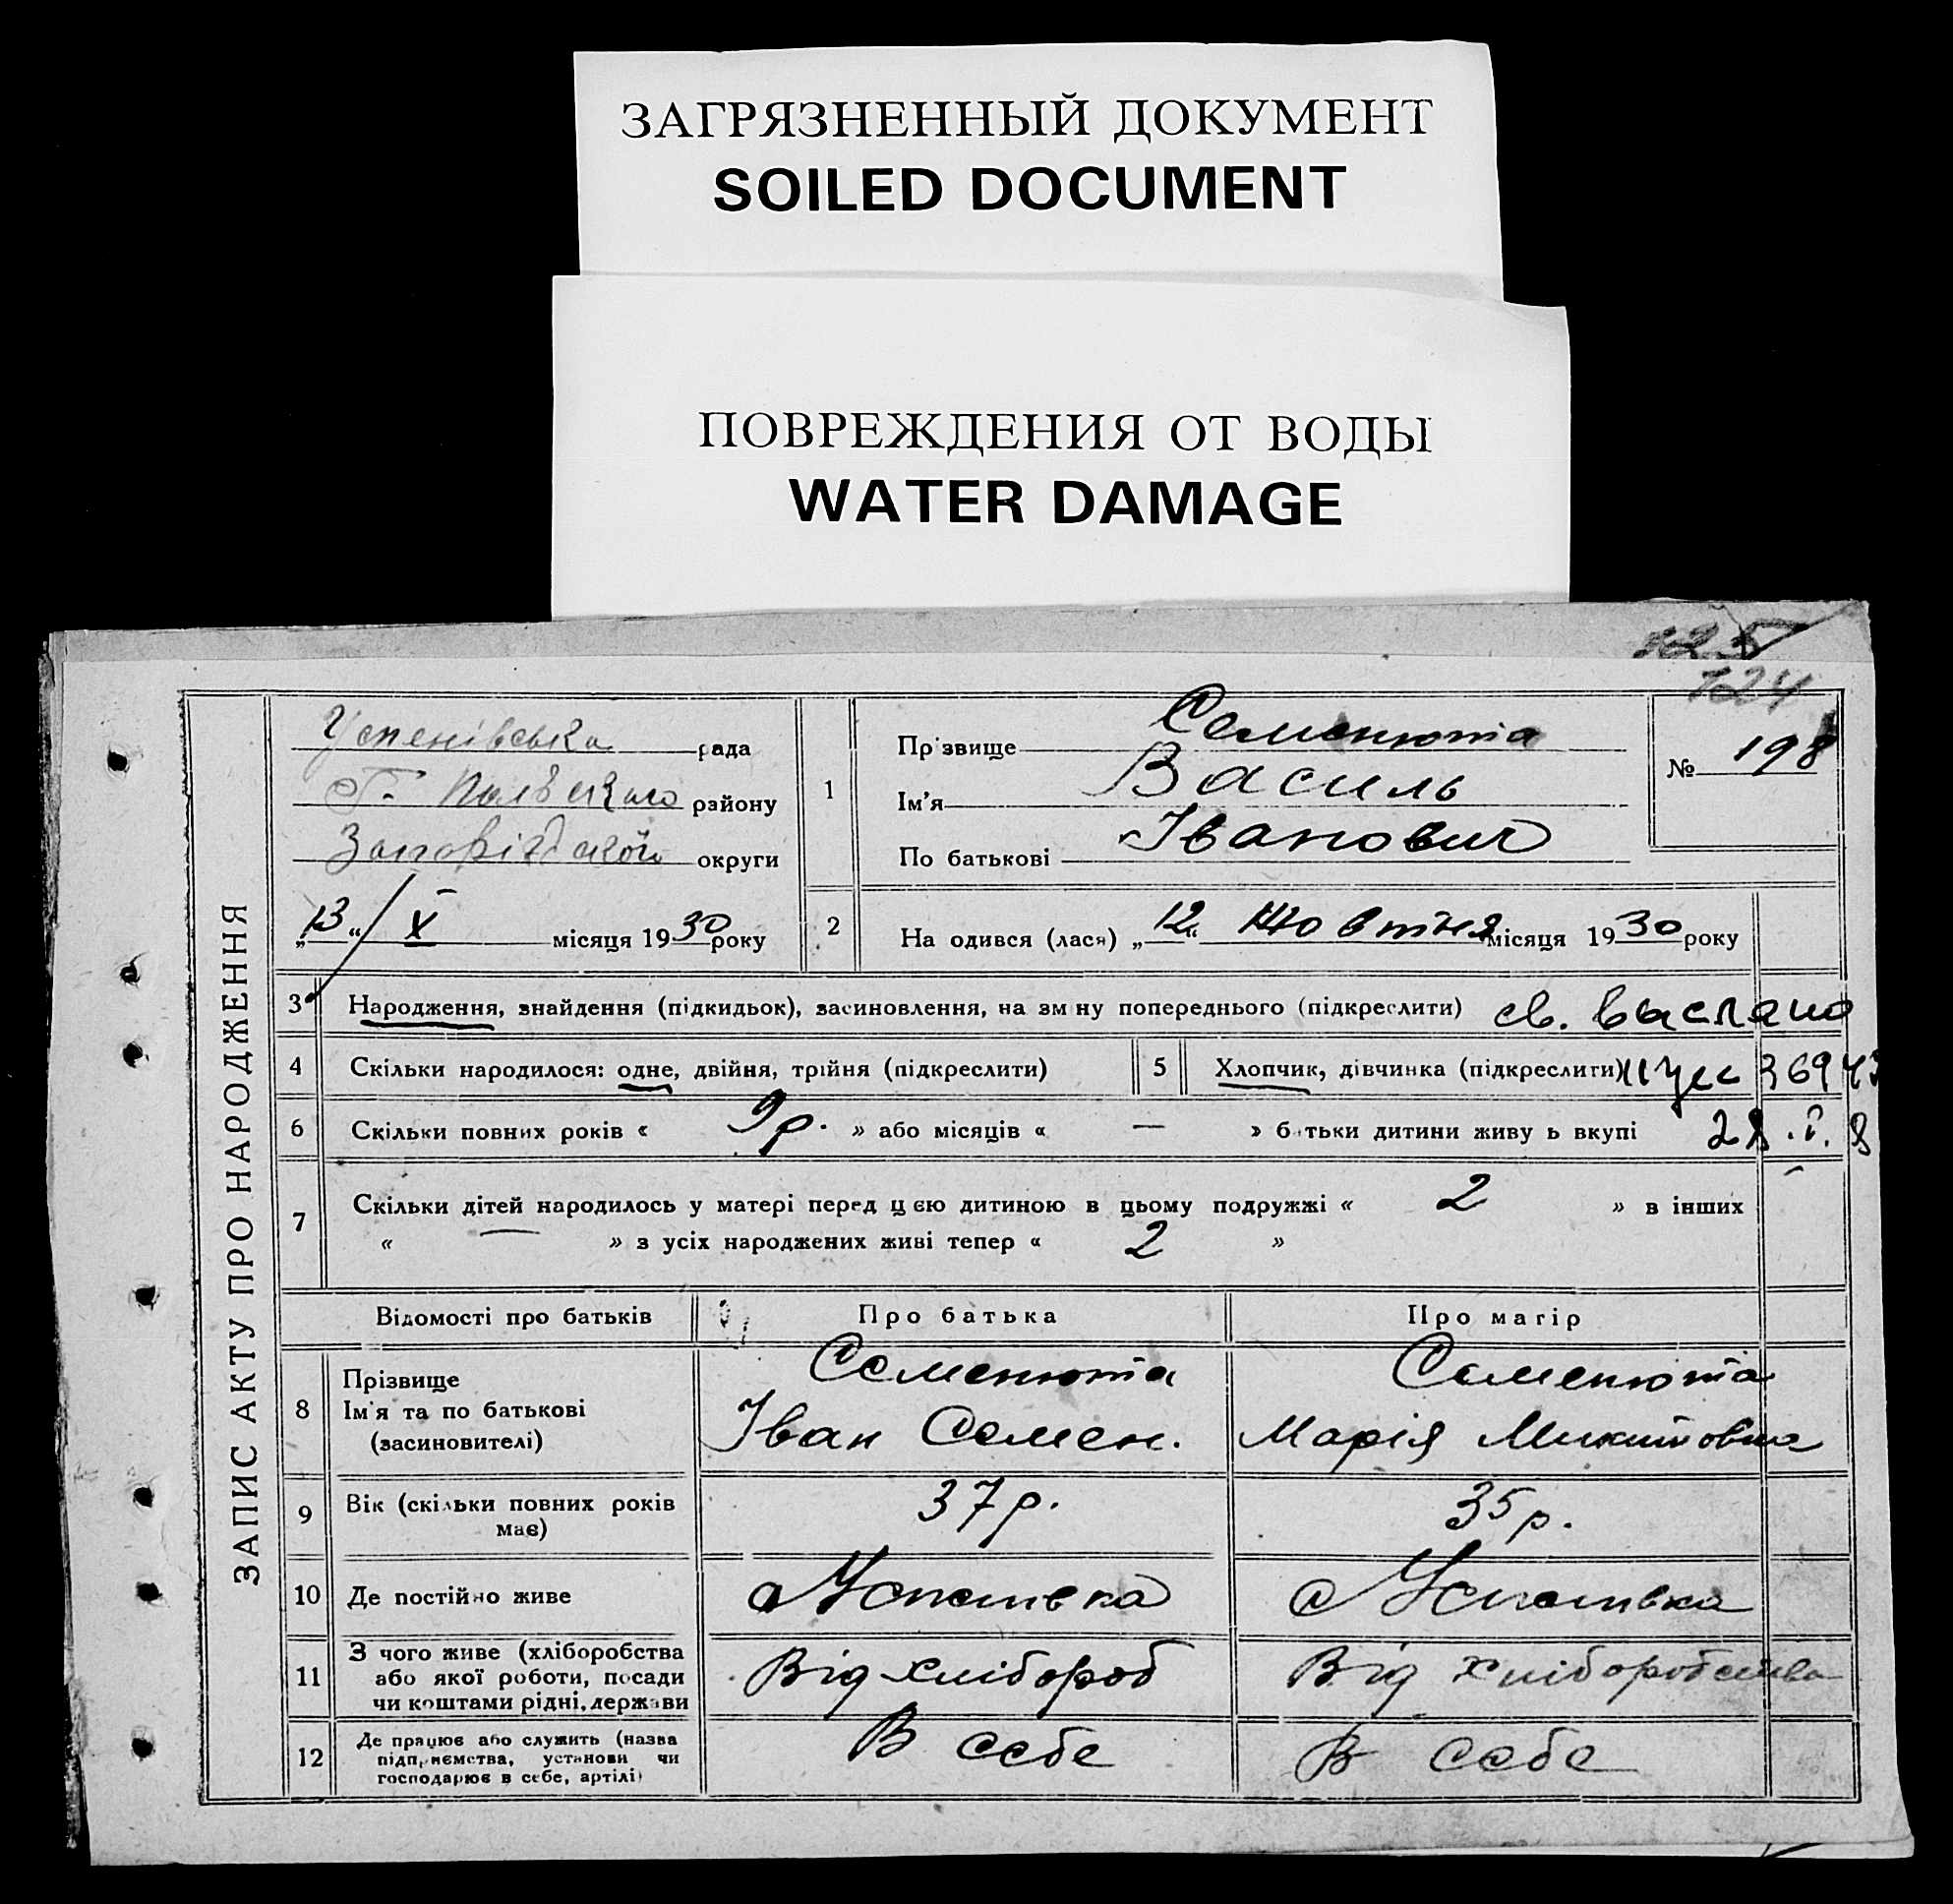 ЗАГРЯЗНЕННЫЙ ДОКУМЕНТ
SOILED DOCUMENT
ПОВРЕЖДЕНИЯ ОТ ВОДЫ
WATER DAMAGE
124
ЗАПИС АКТУ ПРО НАРОДЖЕННЯ
Успенівська рада
району
округи
„13“ X місяця 1930 року
1
Прізвище Семенюта
Ім'я Василь
По батькові Іванович
№ 198
2
На одився (лася) „12“ Жовтня місяця 1930 року
3 Народження, знайдення (підкидьок), засиновлення, на зм ну попереднього (підкреслити) св. выслано
4 Скільки народилося: одне, двійня, трійня (підкреслити)
5 Хлопчик, дівчинка (підкреслити)
6 Скільки повних років « 9 р. » або місяців « — » батьки дитини живу ь вкупі
7 Скільки дітей народилось у матері перед цією дитиною в цьому подружжі « 2 » в інших
« — » з усіх народжених живі тепер « 2 »
Відомості про батьків Про батька Про матір
8 Прізвище Семенюта Семенюта
Ім'я та по батькові Іван Семен. Марія Микитовна
(засиновителі)
9 Вік (скільки повних років має) 37 р. 35 р.
10 Де постійно живе с Успенівка с Успенівка
11 З чого живе (хліборобства
або якої роботи, посади
чи коштами рідні, держави Від хлібороб Від хліборобства
12 Де працює або служить (назва
підприємства, установи чи
господарює в себе, артілі) В себе В себе